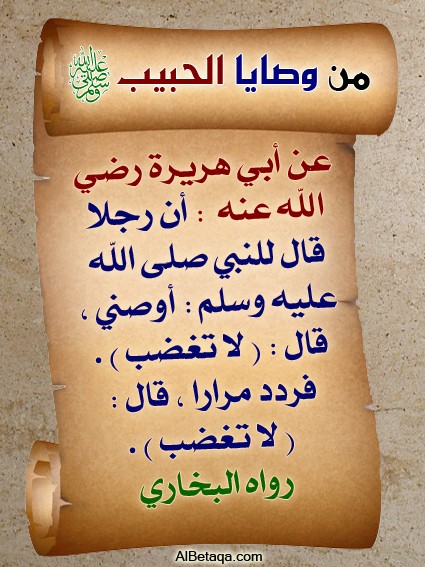 من وصايا الحبيب ﷺ
عن أبي هريرة رضي
الله عنه : أن رجلا
قال للنبي صلى الله
عليه وسلم : أوصني ،
قال : ( لا تغضب ) .
فردد مرارا ، قال :
( لا تغضب ) .
رواه البخاري
AlBetaqa.com